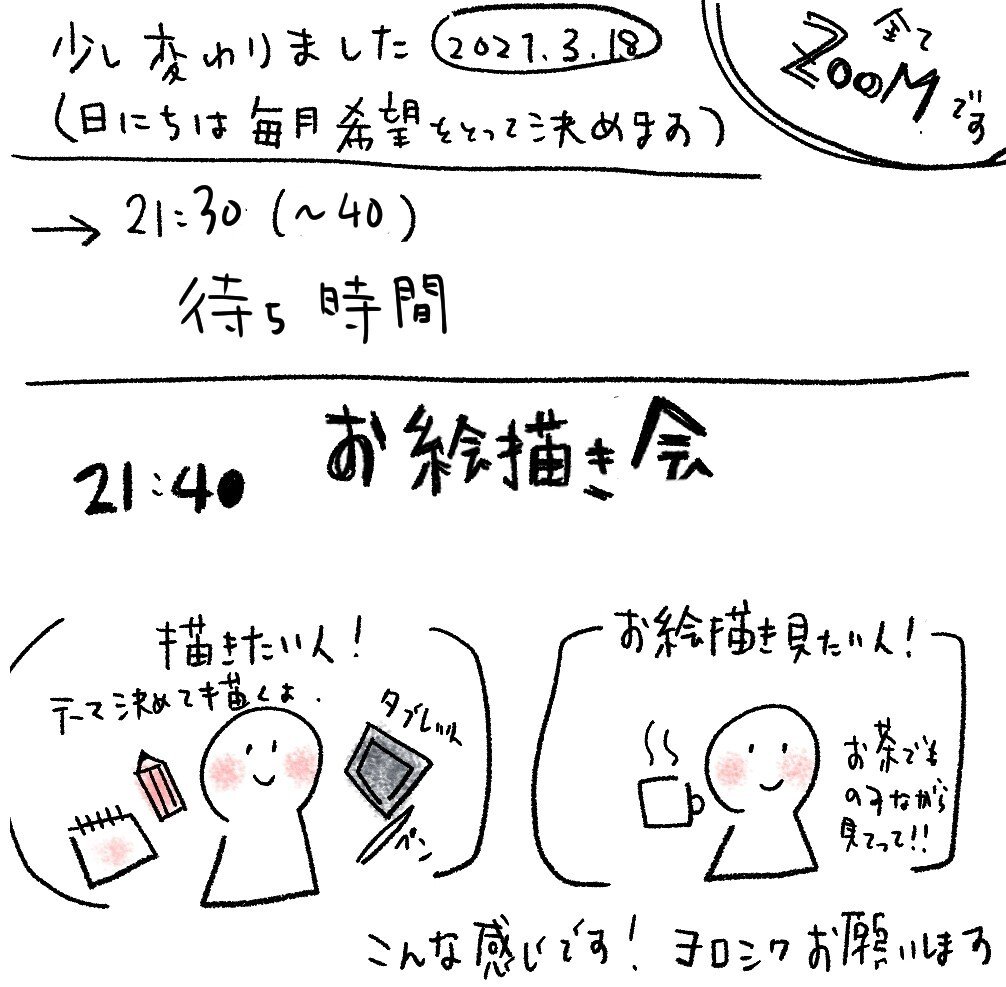 少し変わりました 2021.3.18
(日にちは毎月希望をとって決めます)
全て
ZOOM
です
→ 21:30 (~40)
待ち時間
21:40 お絵描き会
描きたい人!
テーマ決めて描くよ.
タブレット
ペン
お絵描き見たい人!
お茶でも
のみながら
見てって!!
こんな感じです! ヨロシクお願いします